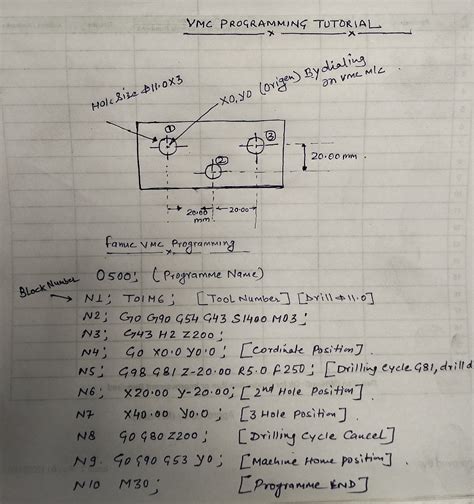 VMC PROGRAMMING TUTORIAL
Hole Size ϕ11.0x3
X0,Y0 (Origen) By dialing
on VMC M/c
①
②
③
20.00 mm
20.00
mm
20.00
fanuc VMC Programming
Block Number
O500; (Programme Name)
N1; T01M6; [Tool Number] [Drill ϕ11.0]
N2; G0 G90 G54 G43 S1400 M03;
N3; G43 H2 Z200;
N4; G0 X0.0 Y0.0; [Cordinate Position].
N5; G98 G81 Z-20.00 R5.0 F250; [Drilling Cycle G81, drill d
N6; X20.00 Y-20.00; [2nd Hole Position]
N7 X40.00 Y0.0; [3 Hole Position]
N8 G0 G80 Z200; [Drilling Cycle Cancel]
N9. G0 G90 G53 Y0; [Machine Home position]
N10 M30; [Programme END]